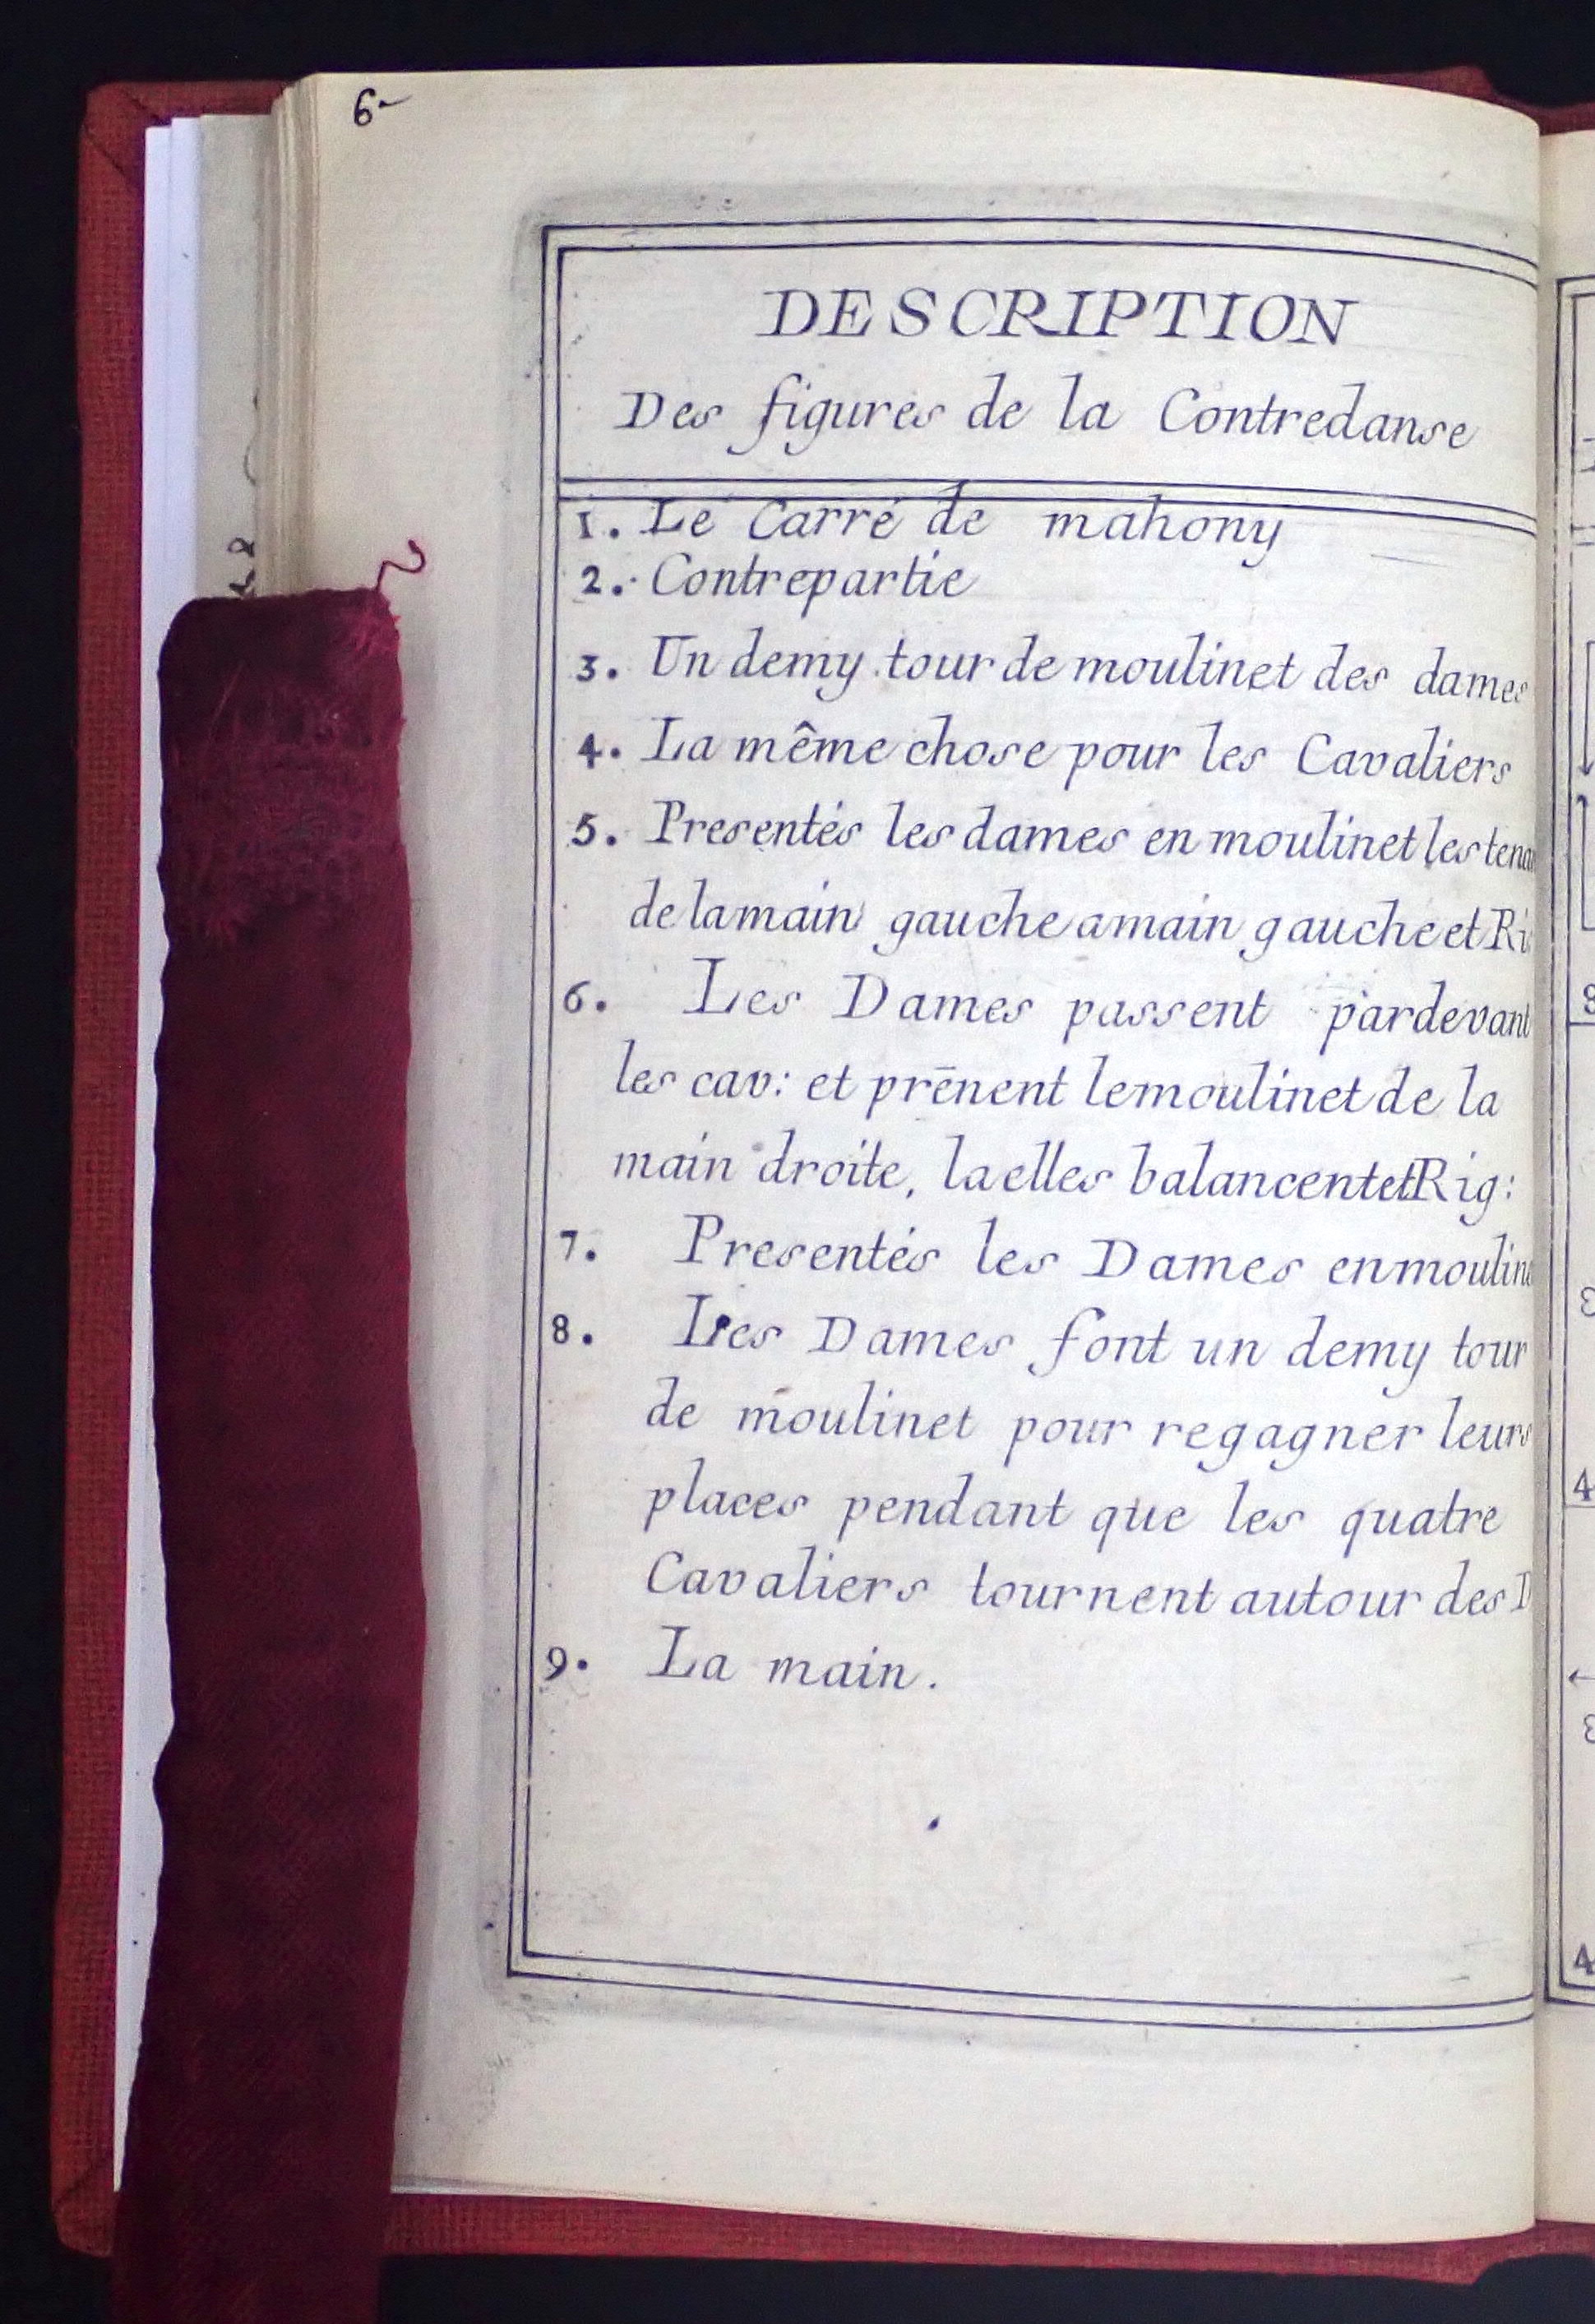 6
DESCRIPTION
Des figures de la Contredanse
1. Le Carré de mahony
2. Contrepartie
3. Un demy tour de moulinet des dames
4. La même chose pour les Cavaliers
5. Presentés les dames en moulinet les tena
de la main gauche a main gauche et Ri
6. Les Dames passent pardevant
les cav: et prēnent le moulinet de la
main droite, la elles balancent et Rig:
7. Presentés les Dames en moulin
8. Les Dames font un demy tour
de moulinet pour regagner leurs
places pendant que les quatre
Cavaliers tournent autour des D
9. La main.